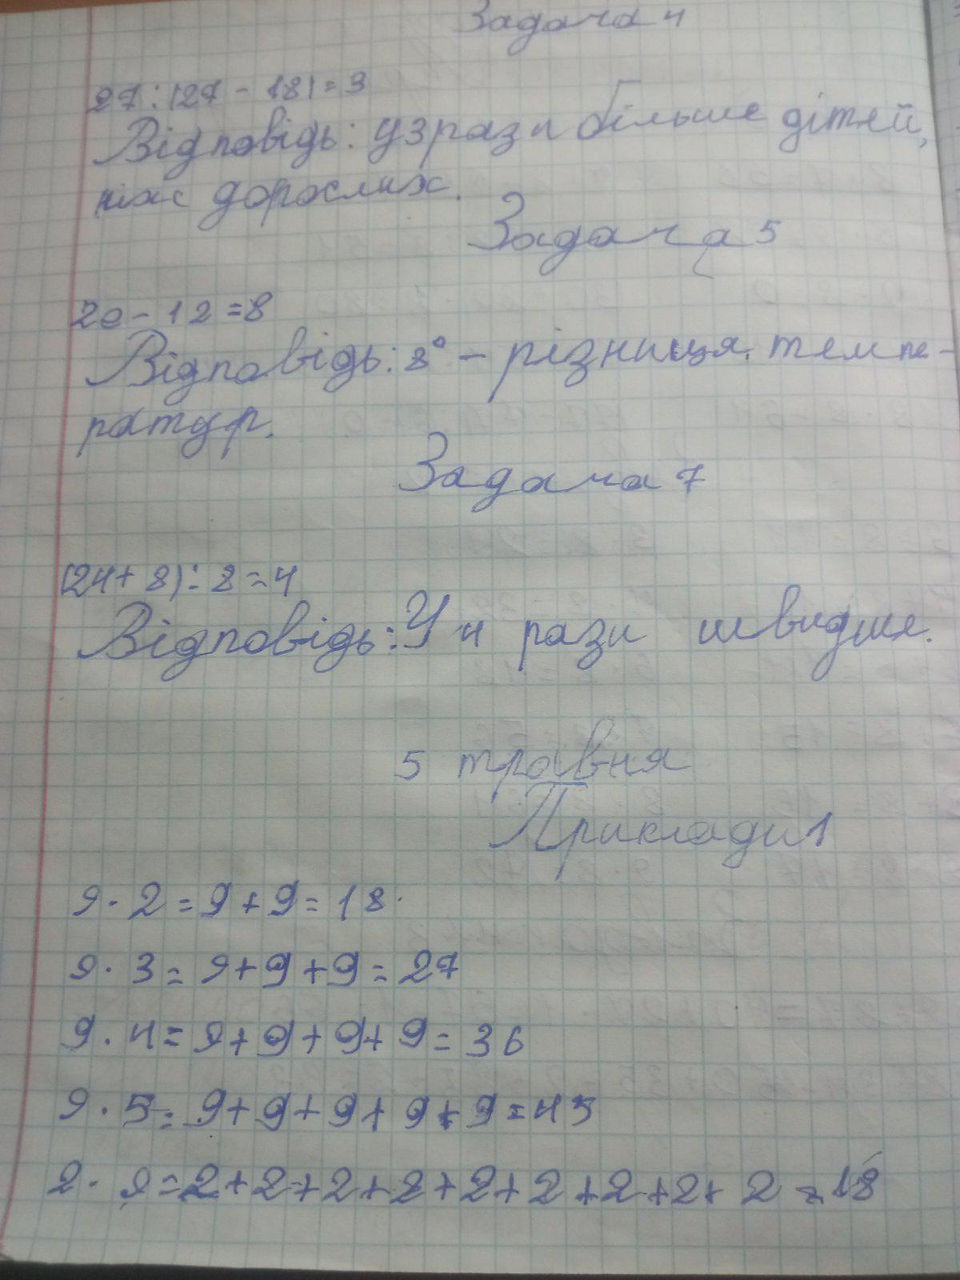 Задача 4
27:(27-18)=3
Відповідь: у 3 рази більше дітей,
ніж дорослих.
Задача 5
20-12=8
Відповідь: 8° - різниця темпе-
ратур.
Задача 7
(24+8):8=4
Відповідь: У 4 рази швидше.
5 травня
Приклади 1
9·2=9+9=18
9·3=9+9+9=27
9·4=9+9+9+9=36
9·5=9+9+9+9+9=45
2·9=2+2+2+2+2+2+2+2+2=18